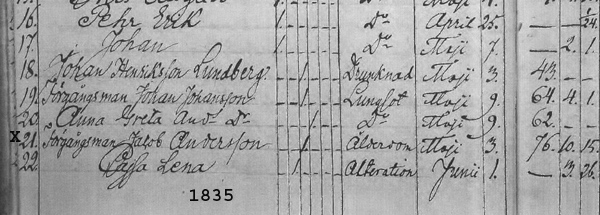 16. Pehr Erik Do April 25. — — 24.
17. Johan Do Maji 7. — 2. 1.
18. Johan Henriksson Lundberg. Drunknad Maji 3. 43. — —
19. Förgångsman Johan Johansson Lungsot Maji 9. 64. 4. 1.
20. Anna Greta And. Dr. Do Maji 9. 62. — —
X 21. Förgångsman Jacob Andersson Ålderdom Maji 3. 76. 10. 15.
22. Cajsa Lena Alteration Junii 1. — 3. 26.
1835